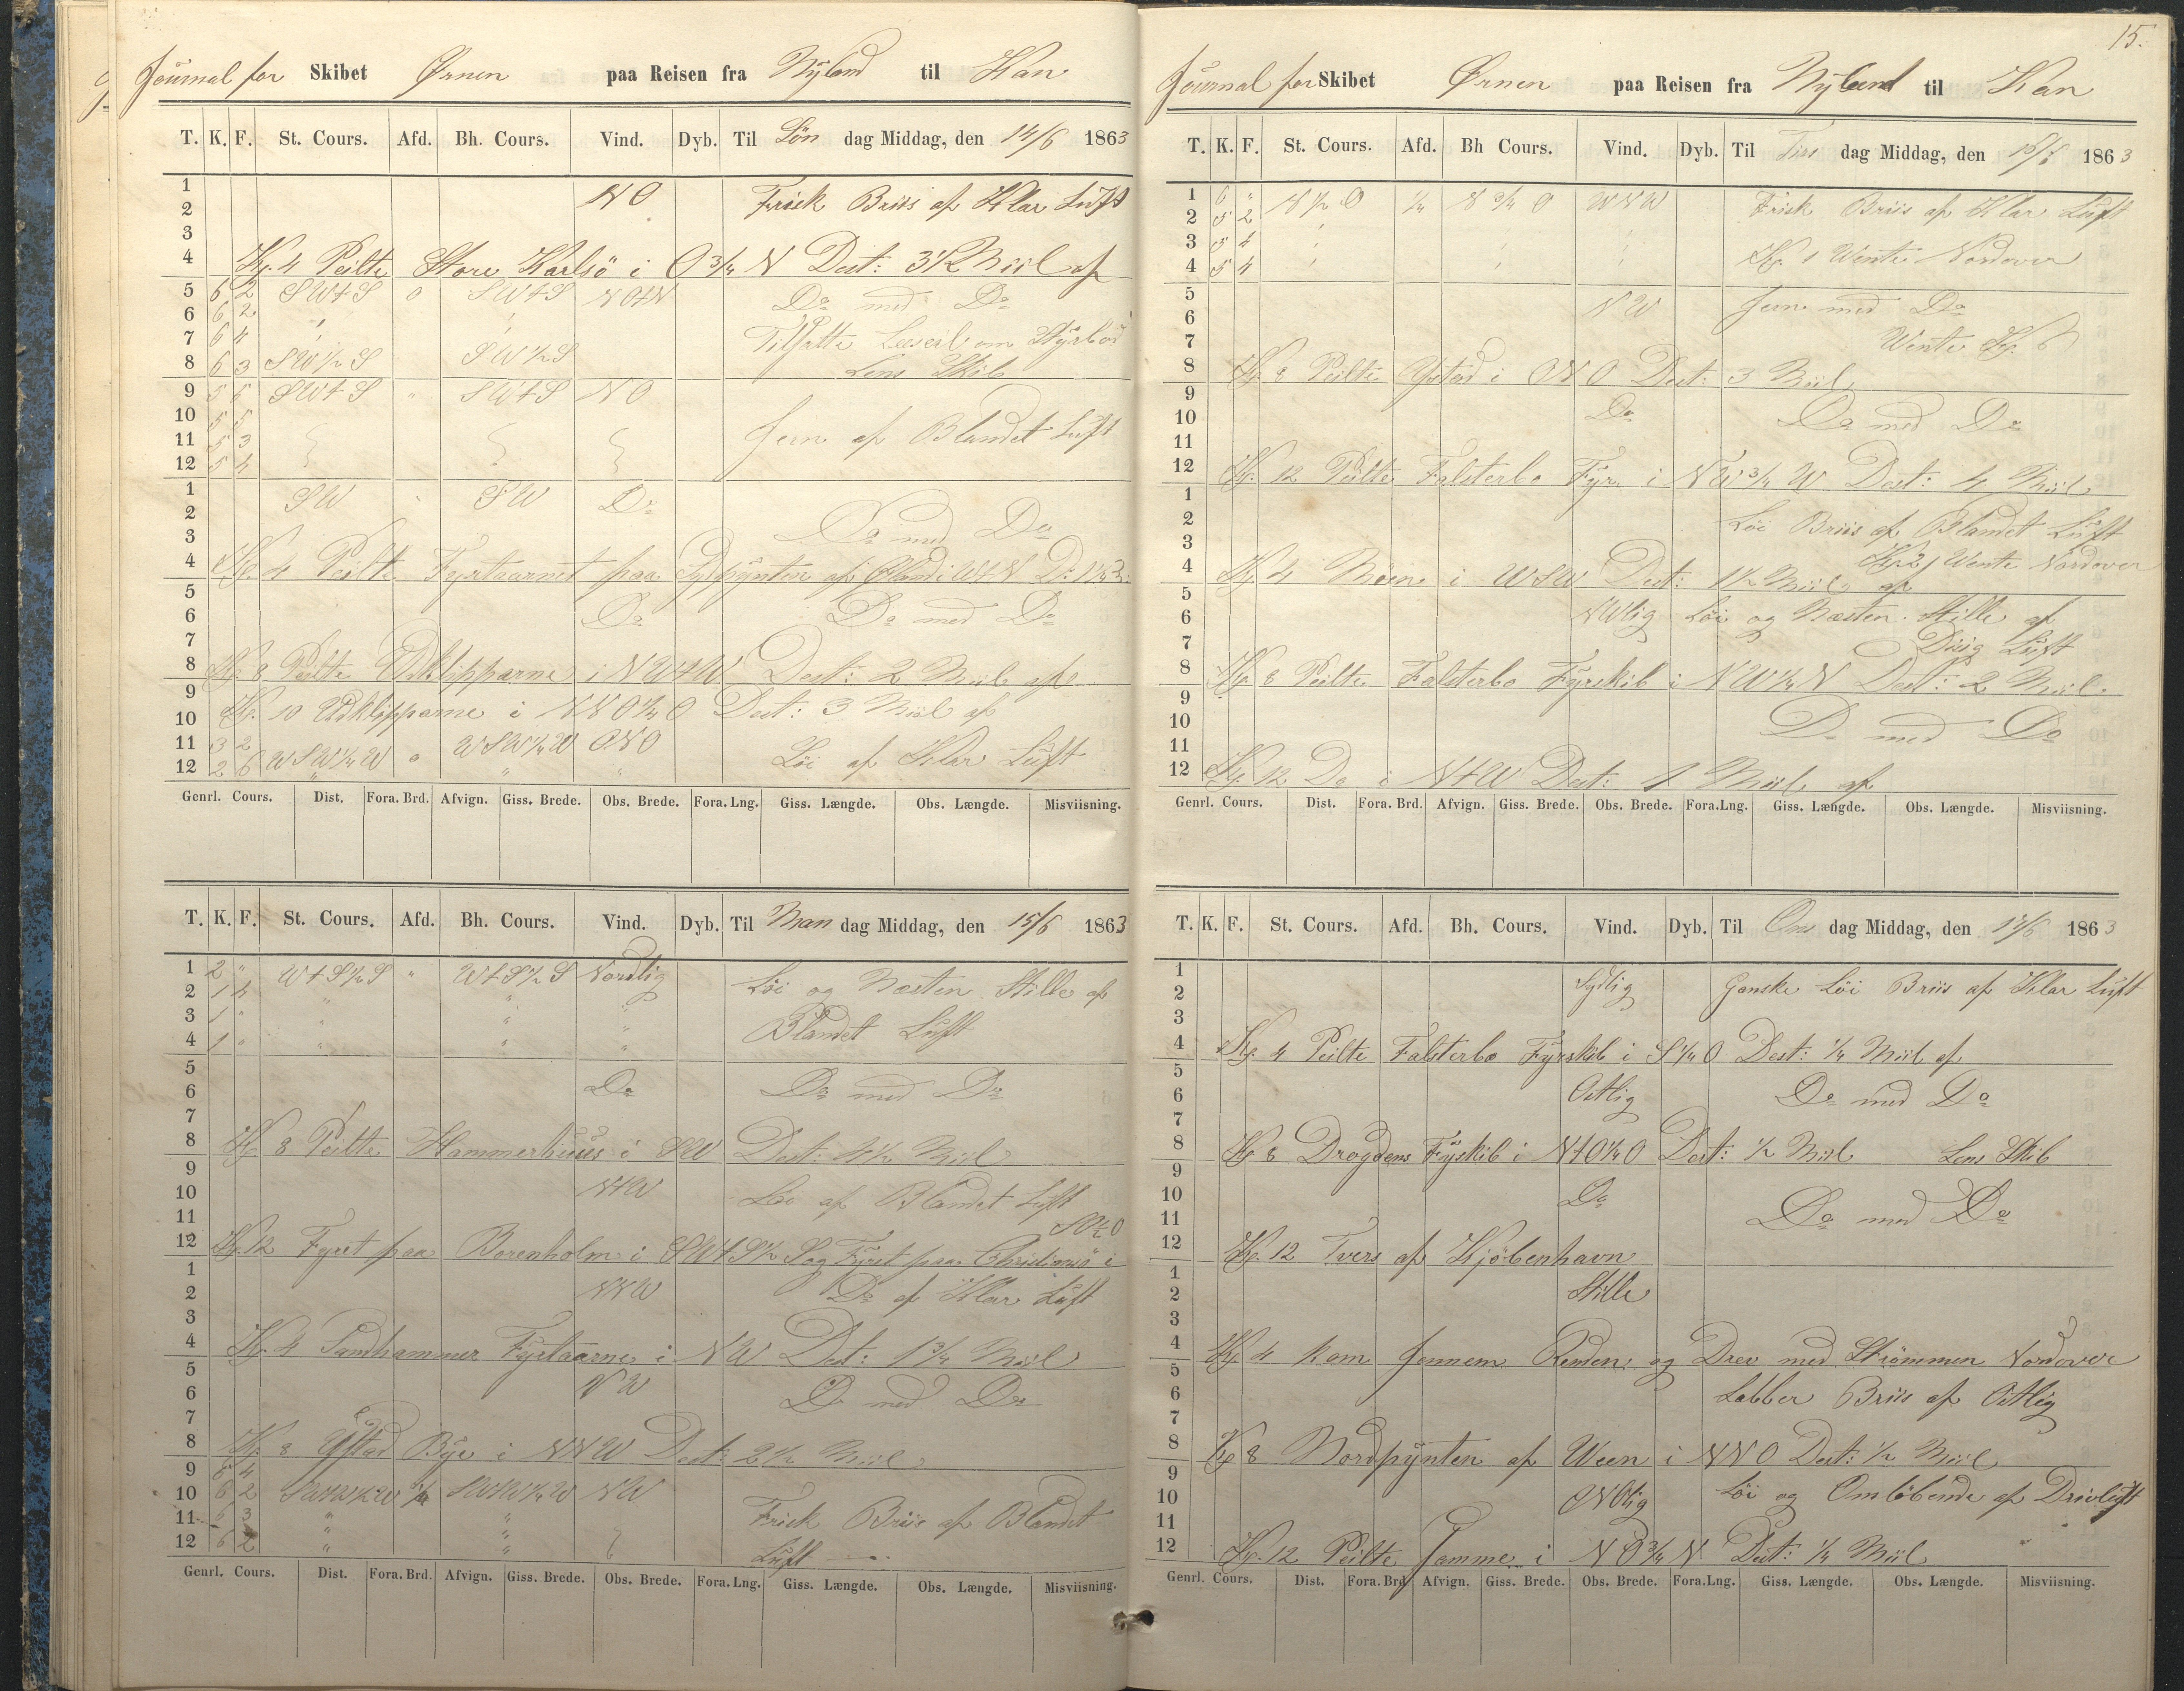 Journal for Skibet Ørnen paa Reisen fra Nyland til Han
T. K. F. St. Cours. Afd. Bh. Cours. Vind. Dyb. Til Søn dag Middag, den 14/6 1863
1 NO Frisk Briis af Klar Luft
2
3
4 Kl. 4 Peilte Store Karlsö i O 3/4 N Dest: 3 1/2 Miil af
5 6 2 SWtS o SWtS NOtN Do med Do
6 6 2
7 6 4 Tilsatte Læseil om Styrbor
8 6 3 SW 1/2 S SW 1/2 S Lens Skib
9 5 5 SWtS " SWtS NO
10 5 5
11 5 3 Jevn af Blandet Luft
12 5 4
1 SW " SW Do
2
3 Do med Do
4 Kl. 4 Peilte Fyrtaarnet paa Sydpynten af Øland i WtN D: 1 1/2 M:
5
6 Do Do med Do
7
8 Kl. 8 Peilte Udklipparne i NWtW Dest: 2 Miil af
9
10 Kl. 10 Udklipparne i NNO 1/4 O Dest: 3 Miil af
11 3 2 WSW 1/4 W o WSW 1/4 W ONO Löi af Klar Luft
12 2 6 " " "
Genrl. Cours. Dist. Fora. Brd. Afvign. Giss. Brede. Obs. Brede. Fora. Lng. Giss. Længde. Obs. Længde. Misviisning.
T. K. F. St. Cours. Afd. Bh. Cours. Vind. Dyb. Til Man dag Middag, den 15/6 1863
1 2 " WtS 1/2 S " WtS 1/2 S Nordlig Löi og Næsten Stille af
2 1 4 " " "
3 1 " " " " Blandet Luft
4 1 " " " "
5
6 Do Do med Do
7
8 Kl. 8 Peilte Hammerhuus i SW Dest: 4 1/2 Miil
9
10 NtW Löi af Blandet Luft
11 SO 1/2 O
12 Kl. 12 Fyret paa Borenholm i SWtS 1/2 S og Fyret paa Christiansö i
1
2 NNW Do af Klar Luft
3
4 Kl. 4 Sandhammer Fyrtaarne i NW Dest: 1 3/4 Miil
5
6 NW Do med Do
7
8 Kl. 8 Ystad Bye i NNW Dest: 2 1/2 Miil
9 6 4
10 6 2 SWtW 1/2 W 1/4 SWtW 1/4 W NW
11 6 3 " " Frisk Briis af Blandet
12 6 2 " " Luft
Genrl. Cours. Dist. Fora. Brd. Afvign. Giss. Brede. Obs. Brede. Fora. Lng. Giss. Længde. Obs. Længde. Misviisning.
15.
Journal for Skibet Ørnen paa Reisen fra Nyland til Han
T. K. F. St. Cours. Afd. Bh Cours. Vind. Dyb. Til Tirs dag Middag, den 16/6 1863
1 6 " N 1/2 O 1/4 N 3/4 O WNW Frisk Briis af Klar Luft
2 5 2
3 5 4
4 5 4 Kl. 1 Wente Nordover
5 NW Jevn med Do
6
7 Wente Kl. 6
8 Kl. 8 Peilte Ystad i ONO Dest: 3 Miil
9
10 Do Do med Do
11
12 Kl. 12 Peilte Falsterbo Fyr i NW 3/4 W Dest: 4 Miil
1
2 Löi Briis af Blandet Luft
3 Kl. 2 Wente Nordover
4 Kl. 4 Möen i WSW Dest: 1 1/2 Miil af
5
6 NWlig Löi og Næsten Stille af
7 Disig Luft
8 Kl. 8 Peilte Falsterbo Fyrskib i NW 1/4 N Dest: 2 Miil
9
10 Do med Do
11
12 Kl. 12 Do i NtW Dest: 1 Miil af
Genrl. Cours. Dist. Fora. Brd. Afvign. Giss. Brede. Obs. Brede. Fora. Lng. Giss. Længde. Obs. Længde. Misviisning.
T. K. F. St. Cours. Afd. Bh. Cours. Vind. Dyb. Til Ons dag Middag, den 17/6 1863
1 Sydlig Ganske Löi Briis af Klar Luft
2
3
4 Kl. 4 Peilte Falsterbo Fyrskib i S 1/4 O Dest: 1/4 Miil af
5
6 Ostlig Do med Do
7
8 Kl. 8 Drogdens Fyskib i NtO 1/4 O Dest: 1/2 Miil Lens Skib
9
10 Do Do med Do
11
12 Kl. 12 Tvers af Kjöbenhavn
1
2 Stille
3
4 Kl. 4 kom Jennem Reden og Drev med Strömmen Nordover
5
6 Labber Briis af Ostlig
7
8 Kl 8 Nordpynten af Ween i NNO Dest: 1/2 Miil
9
10 ONOlig Löi og Omlöbende af Drivluft
11
12 Kl. 12 Peilte Samme i NO 3/4 N Dest: 1/4 Miil
Genrl. Cours. Dist. Fora. Brd. Afvign. Giss. Brede. Obs. Brede. Fora. Lng. Giss. Længde. Obs. Længde. Misviisning.